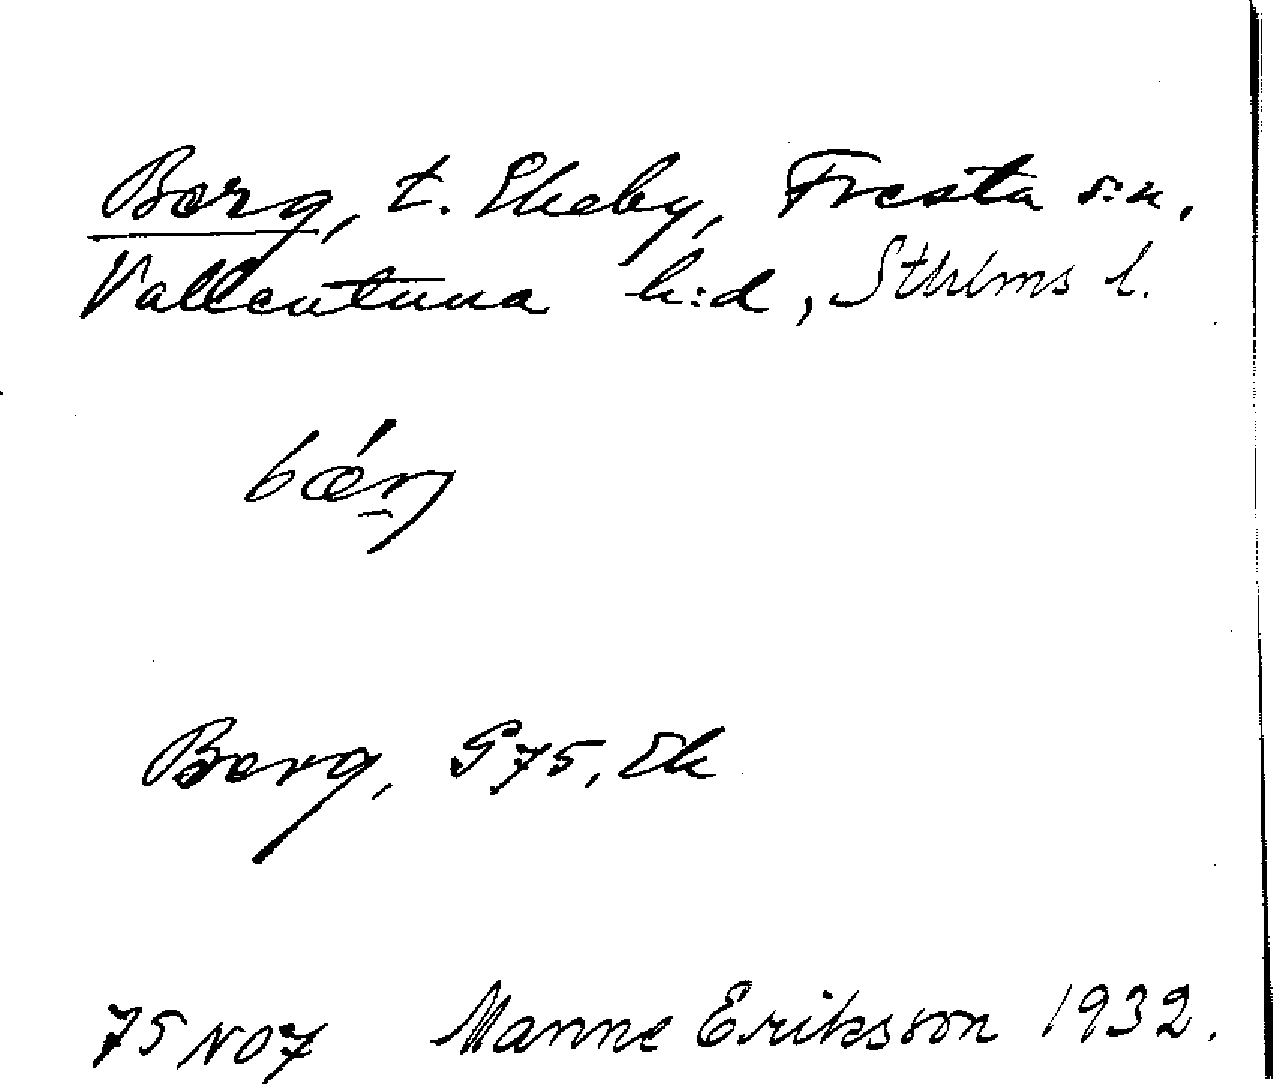 Borg, t. Ekeby, Fresta s:n,
Vallentuna h:d, Sthlms l.
Borg, G 75, Ek
75 NO7 Manne Eriksson 1932.